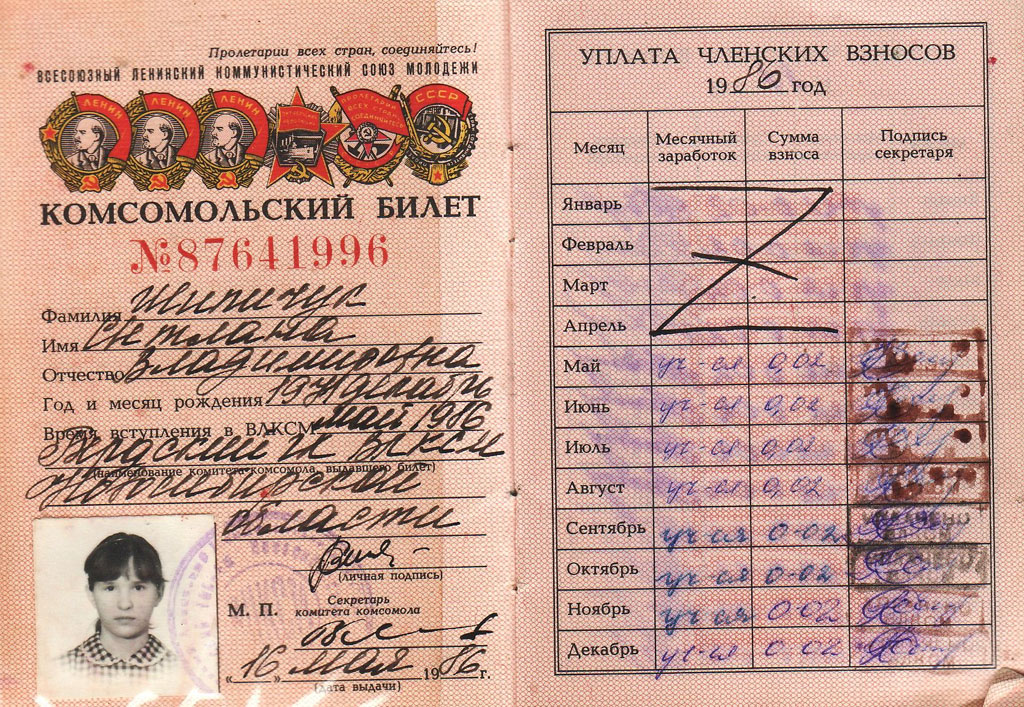 Пролетарии всех стран, соединяйтесь!
ВСЕСОЮЗНЫЙ ЛЕНИНСКИЙ КОММУНИСТИЧЕСКИЙ СОЮЗ МОЛОДЕЖИ
ЛЕНИН ЛЕНИН ЛЕНИН ПРОЛЕТАРИИ ВСЕХ СТРАН СОЕДИНЯЙТЕСЬ СССР
КОМСОМОЛЬСКИЙ БИЛЕТ
№87641996
Фамилия Жипичук
Имя Светлана
Отчество Владимировна
Год и месяц рождения 1971 декабрь
Время вступления в ВЛКСМ май 1986
Бердский ГК ВЛКСМ
(наименование комитета комсомола, выдавшего билет)
Новосибирской
области
(личная подпись)
М. П. Секретарь
комитета комсомола
„16" мая 1986 г.
(дата выдачи)
УПЛАТА ЧЛЕНСКИХ ВЗНОСОВ
1986 год
Месяц Месячный заработок Сумма взноса Подпись секретаря
Январь
Февраль
Март
Апрель
Май уч-ся 0,02
Июнь уч-ся 0,02
Июль уч-ся 0,02
Август уч-ся 0,02
Сентябрь уч-ся 0-02
Октябрь уч-ся 0-02
Ноябрь уч-ся 0-02
Декабрь уч-ся 0-02